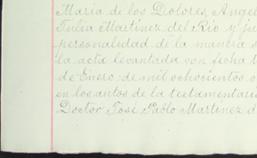 Maria de los Dolores, Angel
Julia Martinez del Rio y ju
personalidad de la manera s
la acta levantada con fecha
de Enero de mil ochocientos o
en los autos de la testamentari
Doctor José Pablo Martinez d